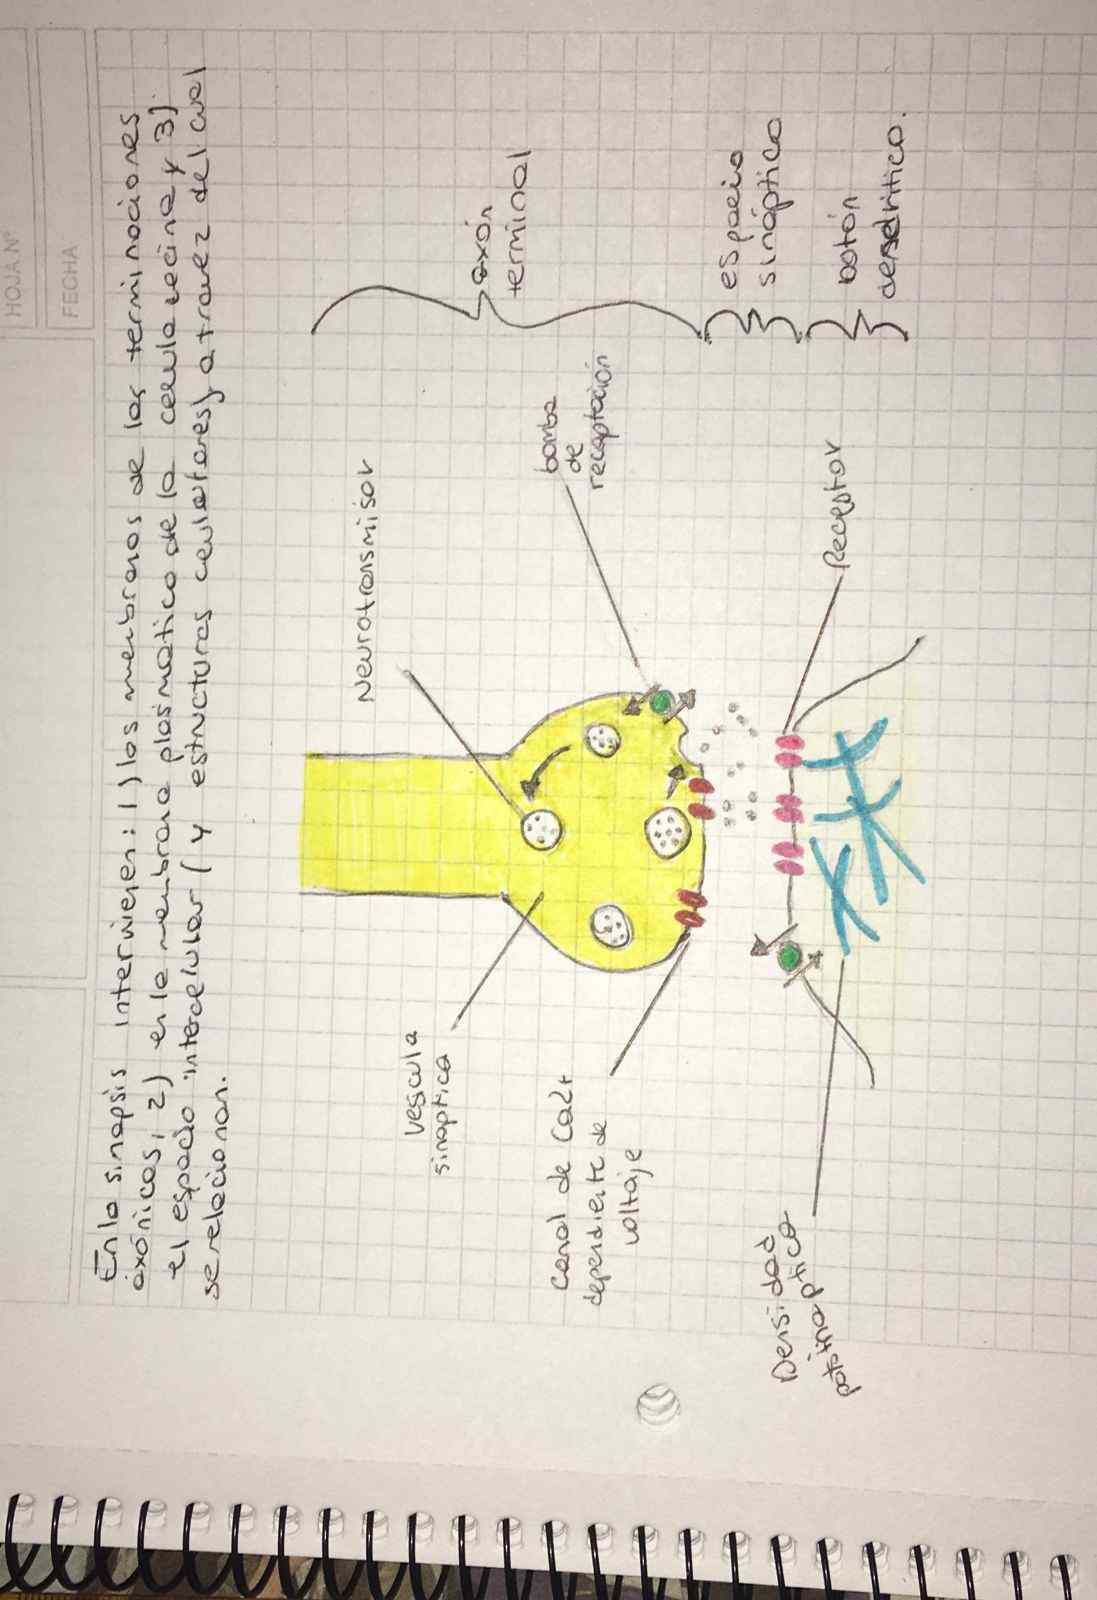 HOJA Nº
FECHA
En la sinapsis intervienen: 1) las membranas de las terminaciones
axónicas, 2) en la membrana plasmatica de la celula vecina y 3)
el espacio intercelular (y estructuras celulares) a travez del cual
se relacionan.
Neurotransmisor
bomba
de
recaptación
axón
terminal
vesicula
sinaptica
Canal de Ca2+
dependiente de
voltaje
espacio
sináptico
Receptor
botón
dendritico.
Densidad